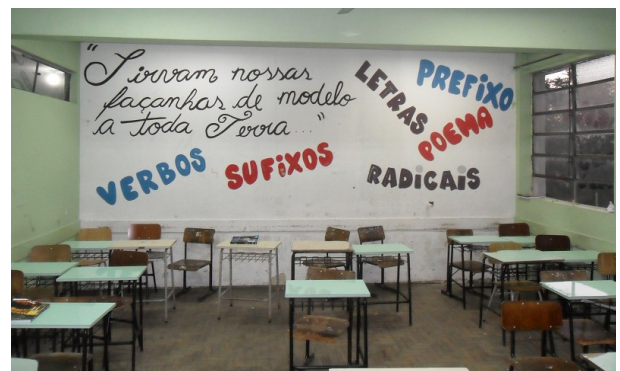 "Sirvam nossas
façanhas de modelo
a toda Terra..."
LETRAS
PREFIXO
POEMA
VERBOS
SUFIXOS
RADICAIS